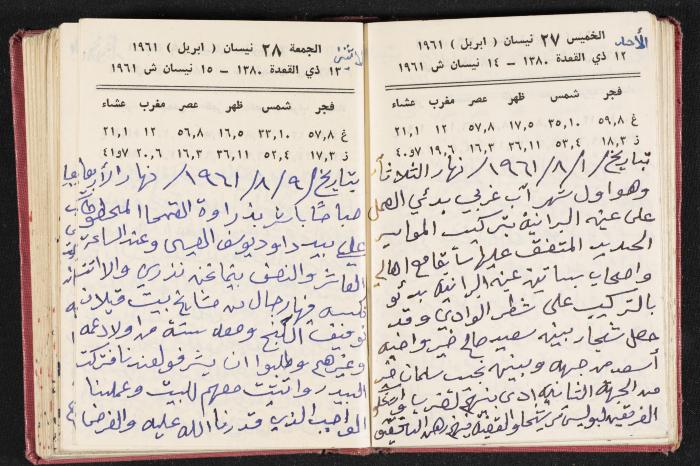 الأحد
الخميس ٢٧ نيسان ( ابريل ) ١٩٦١
١٢ ذي القعدة ١٣٨٠ – ١٤ نيسان ش ١٩٦١
فجر شمس ظهر عصر مغرب عشاء
غ ٥٩,٨ ٣٥,١٠ ١٧,٥ ٥٧,٨ ١٢ ٢١,١
ز ١٨,٣ ٥٣,٤ ٣٦,١١ ١٦,٣ ١٩,٦ ٤٠و٧
بتاريخ /١/ ٨/ ١٩٦١/ نهار الثلاثاء
وهو اول شهر آب غربي بدئي العمل
على عين البرانية بتركيب المواسير
الحديد المتفق عليها سابقا مع اهالي
واصحاب بساتين عين البرانية بدئو
بالتركيب على شطر الوادي وقد
حصل شجار بين سعيد صالح خير واخيه
أسعد من جهه وبين نجيب سلمان خير
من الجهة الثانية ادى
الفريقين لبوليس
الاثنين
الجمعة ٢٨ نيسان ( ابريل ) ١٩٦١
١٣ ذي القعدة ١٣٨٠ – ١٥ نيسان ش ١٩٦١
فجر شمس ظهر عصر مغرب عشاء
غ ٥٧,٨ ٣٣,١٠ ١٦,٥ ٥٦,٨ ١٢ ٢١,١
ز ١٧,٣ ٥٢,٤ ٣٦,١١ ١٦,٣ ٢٠,٦ ٤١و٧
بتاريخ / ٩/ ٨/ ١٩٦١/ نهار الأربعاء
صباحًا باشر بذراوة القمحا
على بيدر داود يوسف العيسمي وعند الساعة
العاشر والنصف بينما نحن نذري والا
فيها رجال من مشايخ بيت قبلان
توفيق الكبج ومعه ستة من اولاد عمه
وغيرهم وطلبوا ان يشرفو لعندنا فتركت
البيدر واتيت معهم للبيت وعملنا
الواجب الذي قدرنا الله عليه والغرض